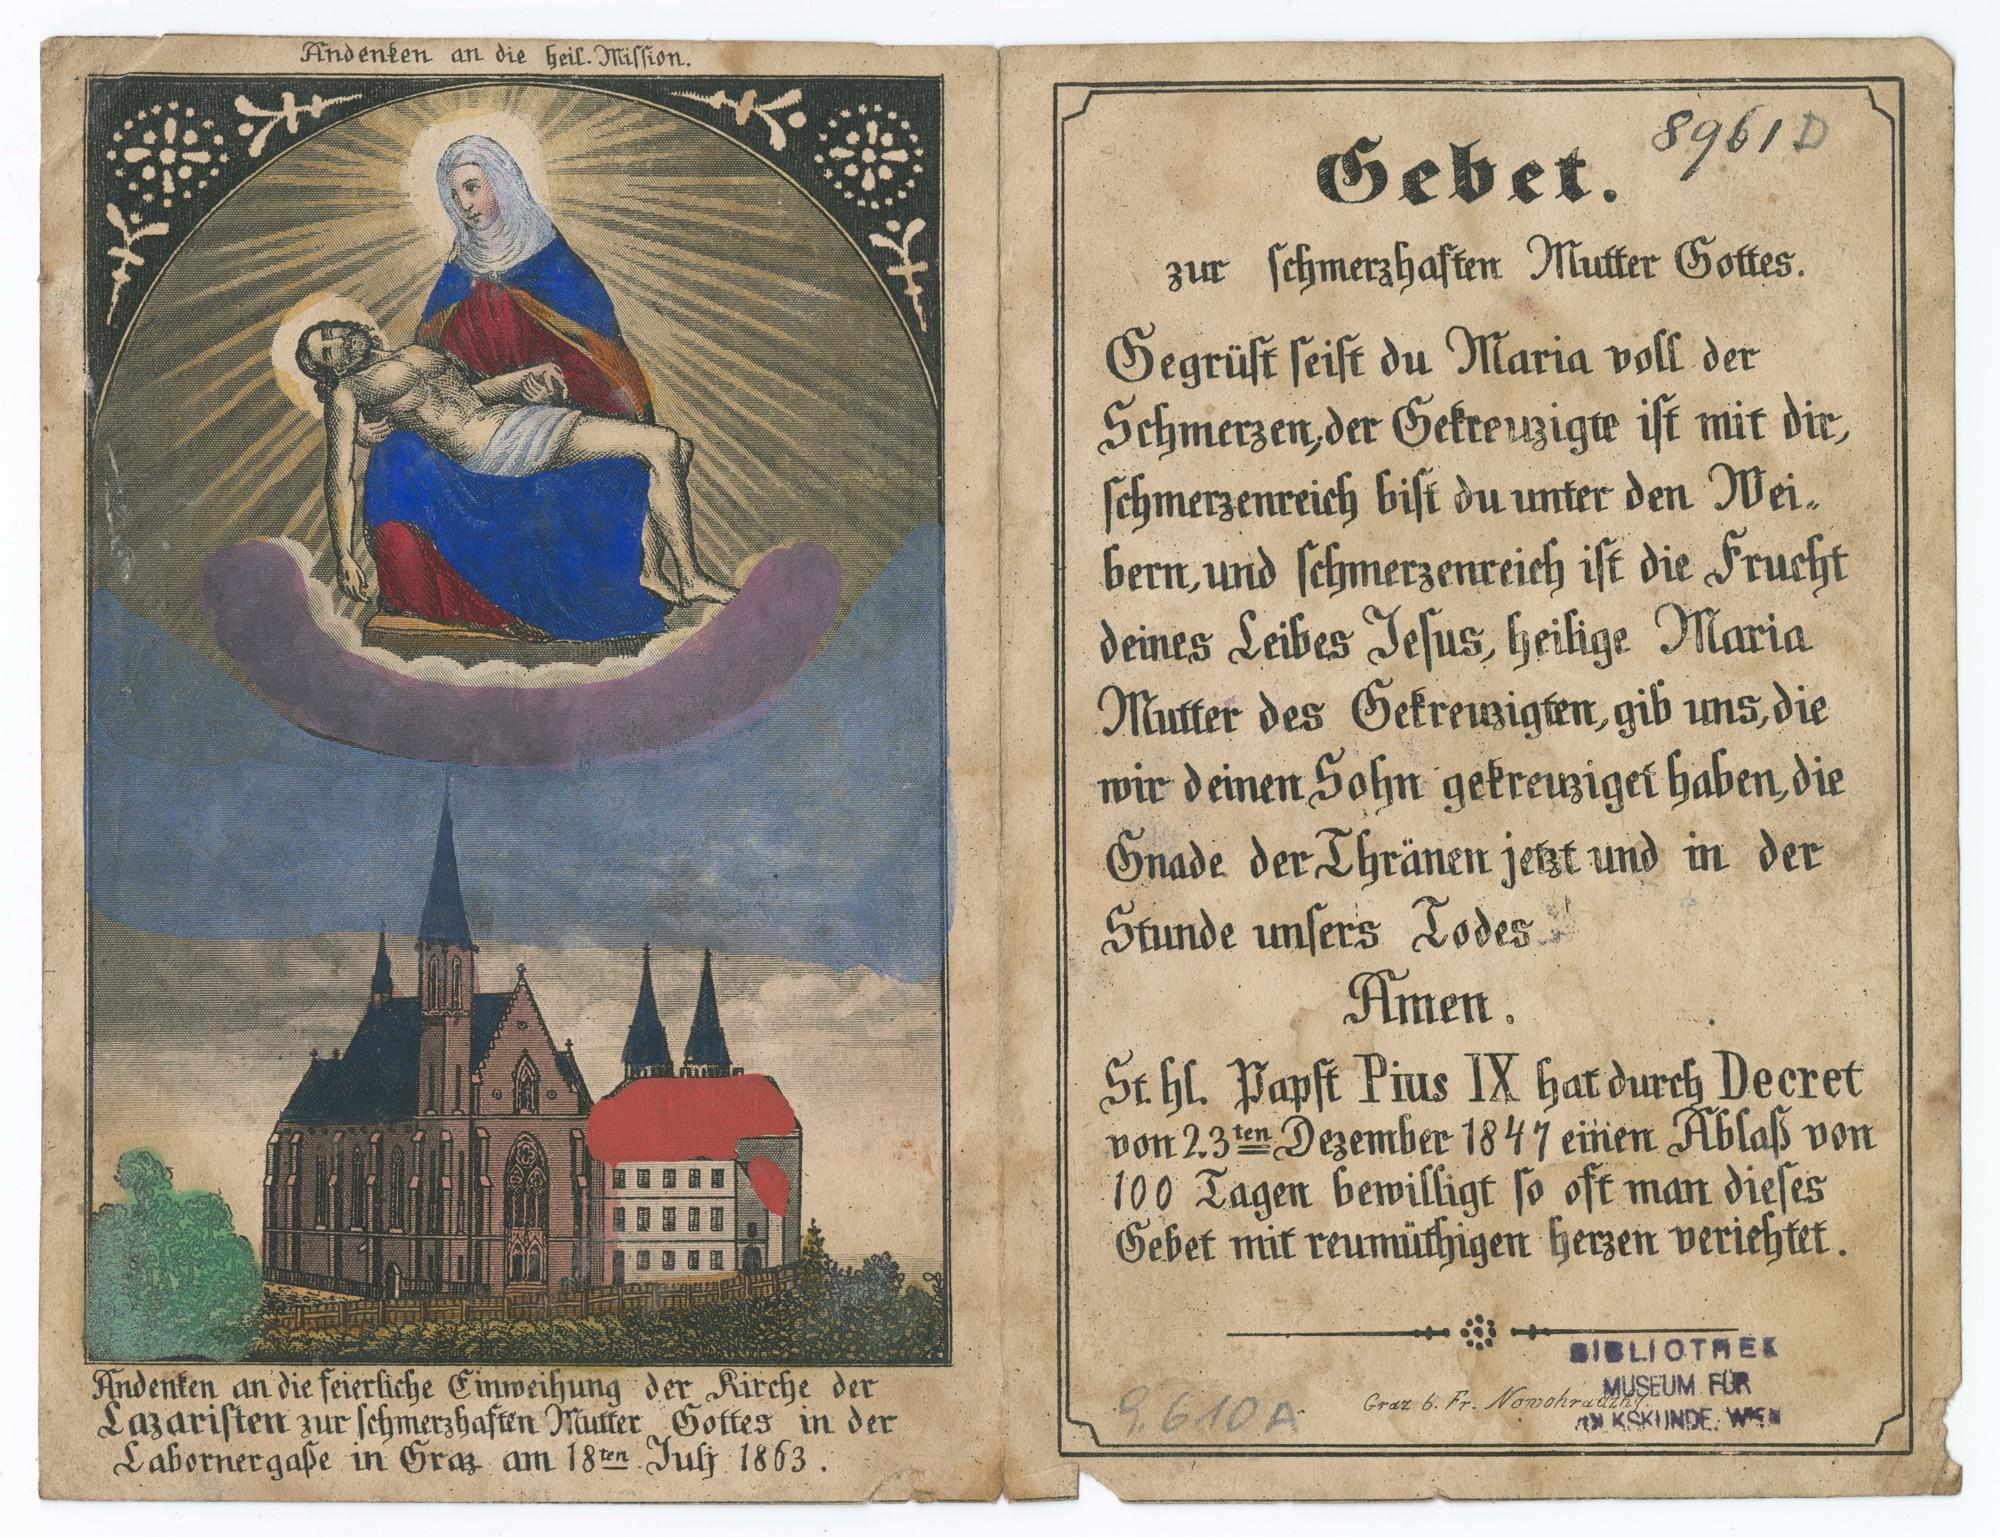 Andenken an die heil. Mission.
Andenken an die feierliche Einweihung der Kirche der
Lazaristen zur schmerzhaften Mutter Gottes in der
Labornergaße in Graz am 18ten Julj 1863.
8961 D
Gebet.
zur schmerzhaften Mutter Gottes.
Gegrüst seist du Maria voll der
Schmerzen, der Gekreuzigte ist mit dir,
schmerzenreich bist du unter den Wei=
bern, und schmerzenreich ist die Frucht
deines Leibes Jesus, heilige Maria
Mutter des Gekreuzigten, gib uns, die
wir deinen Sohn gekreuziget haben, die
Gnade der Thränen jetzt und in der
Stunde unsers Todes
Amen.
St. hl. Papst Pius IX hat durch Decret
von 23ten Dezember 1847 einen Ablaß von
100 Tagen bewilligt so oft man dieses
Gebet mit reumüthigen herzen verichtet.
BIBLIOTHEK
MUSEUM FÜR
VOLKSKUNDE, WIEN
Graz b. Fr. Nowohradzky.
9.610 A